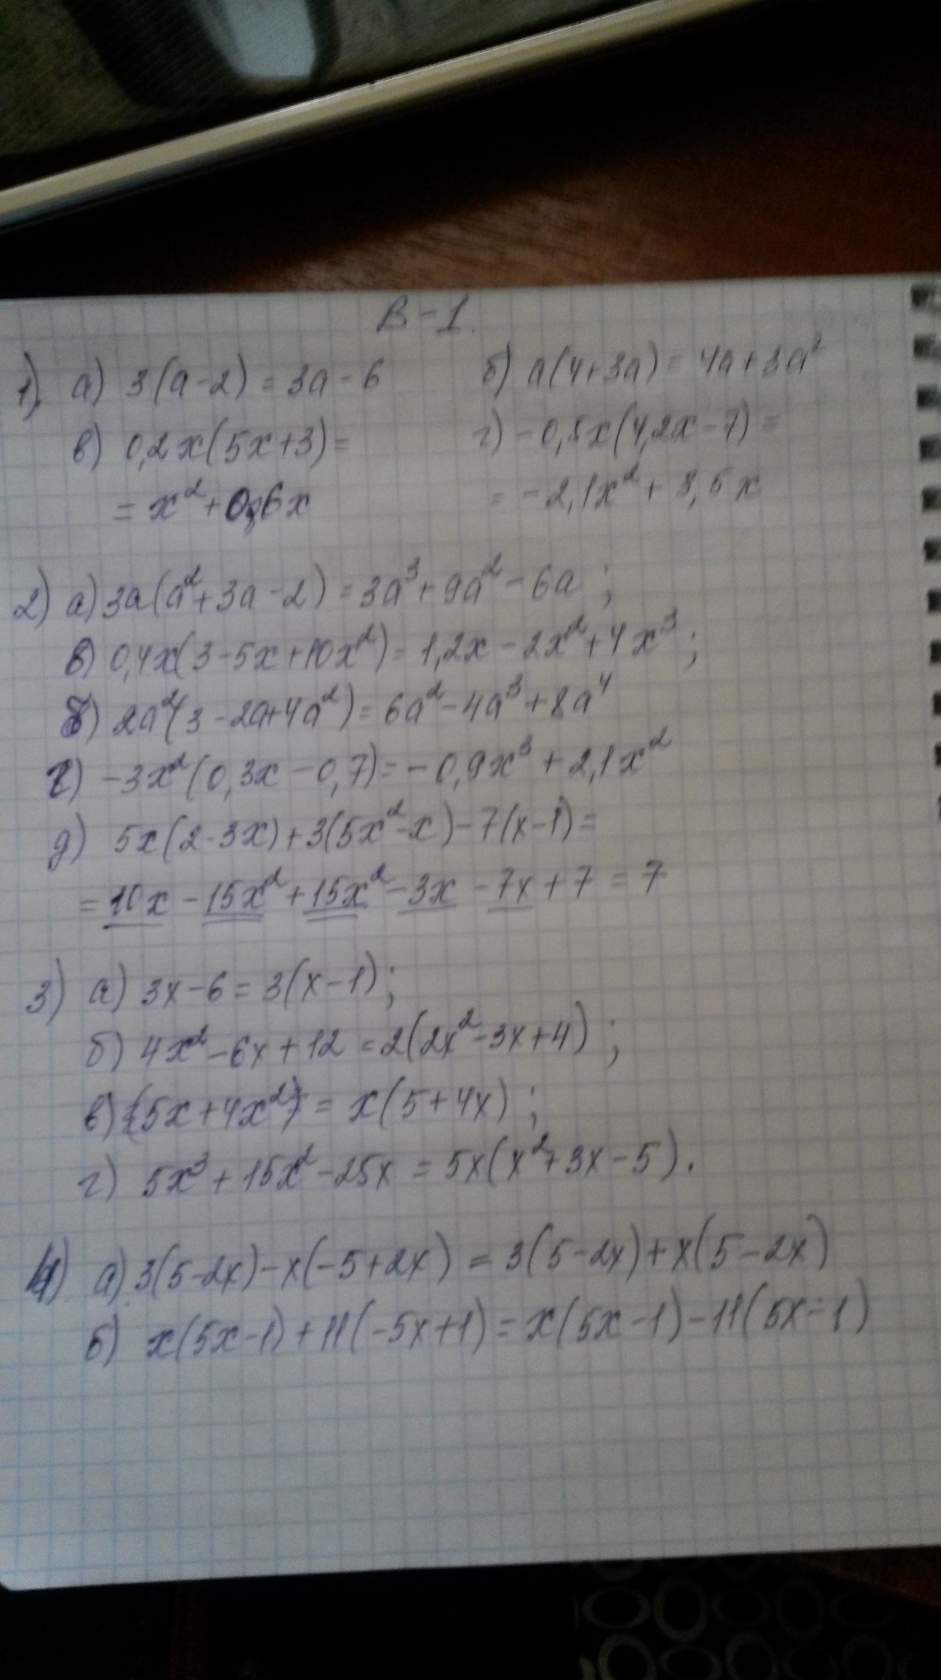 В-1.
1) а) 3(a-2) = 3a-6 б) a(4+3a) = 4a+3a²
в) 0,2x(5x+3)= г) -0,5x(4,2x-7) =
= x²+0,6x = -2,1x²+3,5x
2) а) 3a(a²+3a-2) = 3a³+9a²-6a ;
в) 0,4x(3-5x+10x²) = 1,2x-2x²+4x³ ;
б) 2a²(3-2a+4a²) = 6a²-4a³+8a⁴
г) -3x²(0,3x-0,7) = -0,9x³+2,1x²
д) 5x(2-3x)+3(5x²-x)-7(x-1)=
= 10x-15x²+15x²-3x-7x+7 = 7
3) а) 3x-6 = 3(x-1) ;
б) 4x²-6x+12 = 2(2x²-3x+4) ;
в) (5x+4x²) = x(5+4x) ;
г) 5x³+15x²-25x = 5x(x²+3x-5).
4) а) 3(5-2x)-x(-5+2x) = 3(5-2x)+x(5-2x)
б) x(5x-1)+11(-5x+1) = x(5x-1)-11(5x-1)